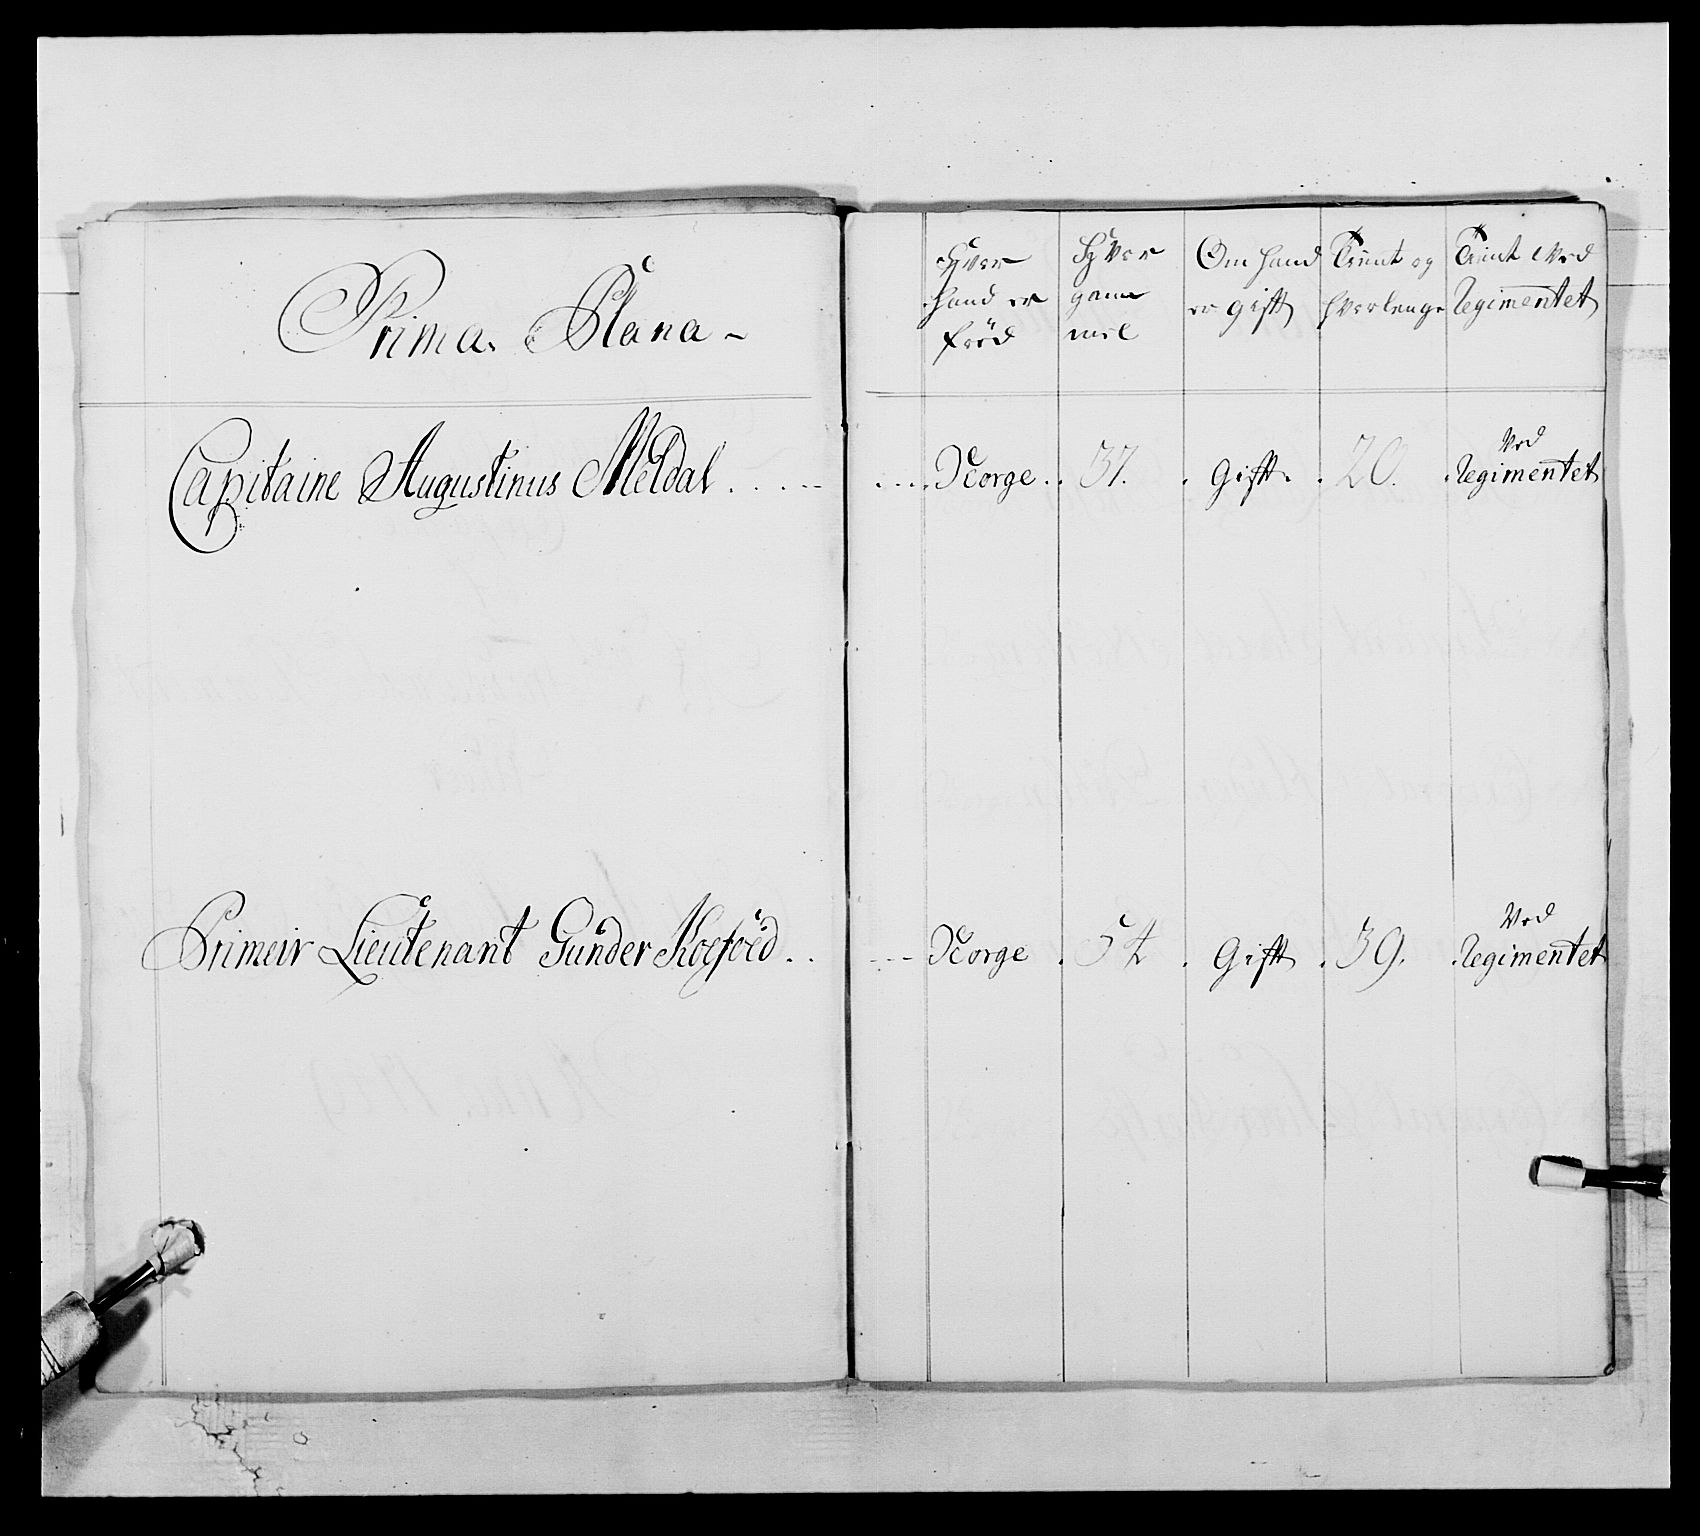 Prima Plana
Hvor hand er föd
Hvor gammel
Om hand er gift
Tient og hvorlenge
Tient ved Regimentet
Capitaine Augustinus Meldal . . . . Norge . 37. Gift . 20. Ved Regimentet
Primeir Lieutenant Gunder Koefoed . . . Norge . 54 . Gift . 39. Ved Regimentet